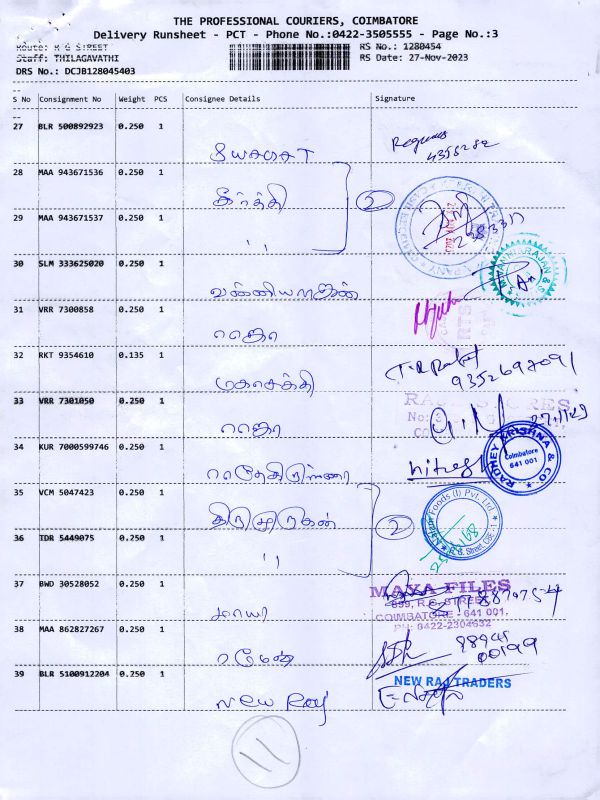 THE PROFESSIONAL COURIERS, COIMBATORE
Delivery Runsheet - PCT - Phone No.:0422-3505555 - Page No.:3
Route: R G STREET
Staff: THILAGAVATHI
DRS No.: DCJB128045403
RS No.: 1280454
RS Date: 27-Nov-2023
S No Consignment No Weight PCS Consignee Details Signature
27 BLR 500892923 0.250 1
28 MAA 943671536 0.250 1
கீர்த்தி 2
29 MAA 943671537 0.250 1
''
30 SLM 333625020 0.250 1
வன்னியராஜன்
31 VRR 7300858 0.250 1
ராஜா
32 RKT 9354610 0.135 1
மகாசக்தி
9352697091
33 VRR 7301050 0.250 1
ராஜா
27/11/23
34 KUR 7000599746 0.250 1
ராதேகிருஷ்ணா
Nitesh
RADHEY KRISHNA & CO
Coimbatore
641 001
35 VCM 5047423 0.250 1
திருமுருகன் 2
Foods (I) Pvt. Ltd.
R.G. Street, CBE -1
36 IDR 5449075 0.250 1
''
37 BWD 30528052 0.250 1
மாயா
MAYA FILES
699, R.G. STREET
COIMBATORE - 641 001.
PH: 0422-2304632
38 MAA 862827267 0.250 1
ரமேஷ்
39 BLR 5100912204 0.250 1
New Raj
NEW RAJ TRADERS
11